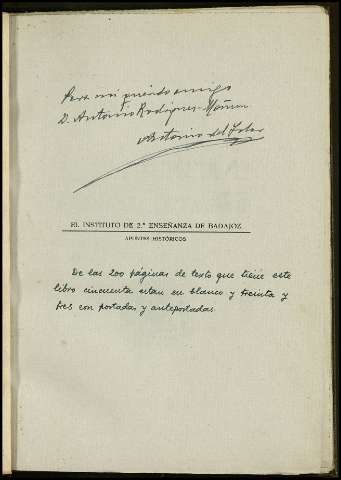 Para mi querido amigo
D. Antonio Rodriguez-Moñino
Antonio del Solar
EL INSTITUTO DE 2.ª ENSEÑANZA DE BADAJOZ
APUNTES HISTÓRICOS
De las 200 páginas de texto que tiene este
libro cincuenta estan en blanco y treinta y
tres con portadas y anteportadas